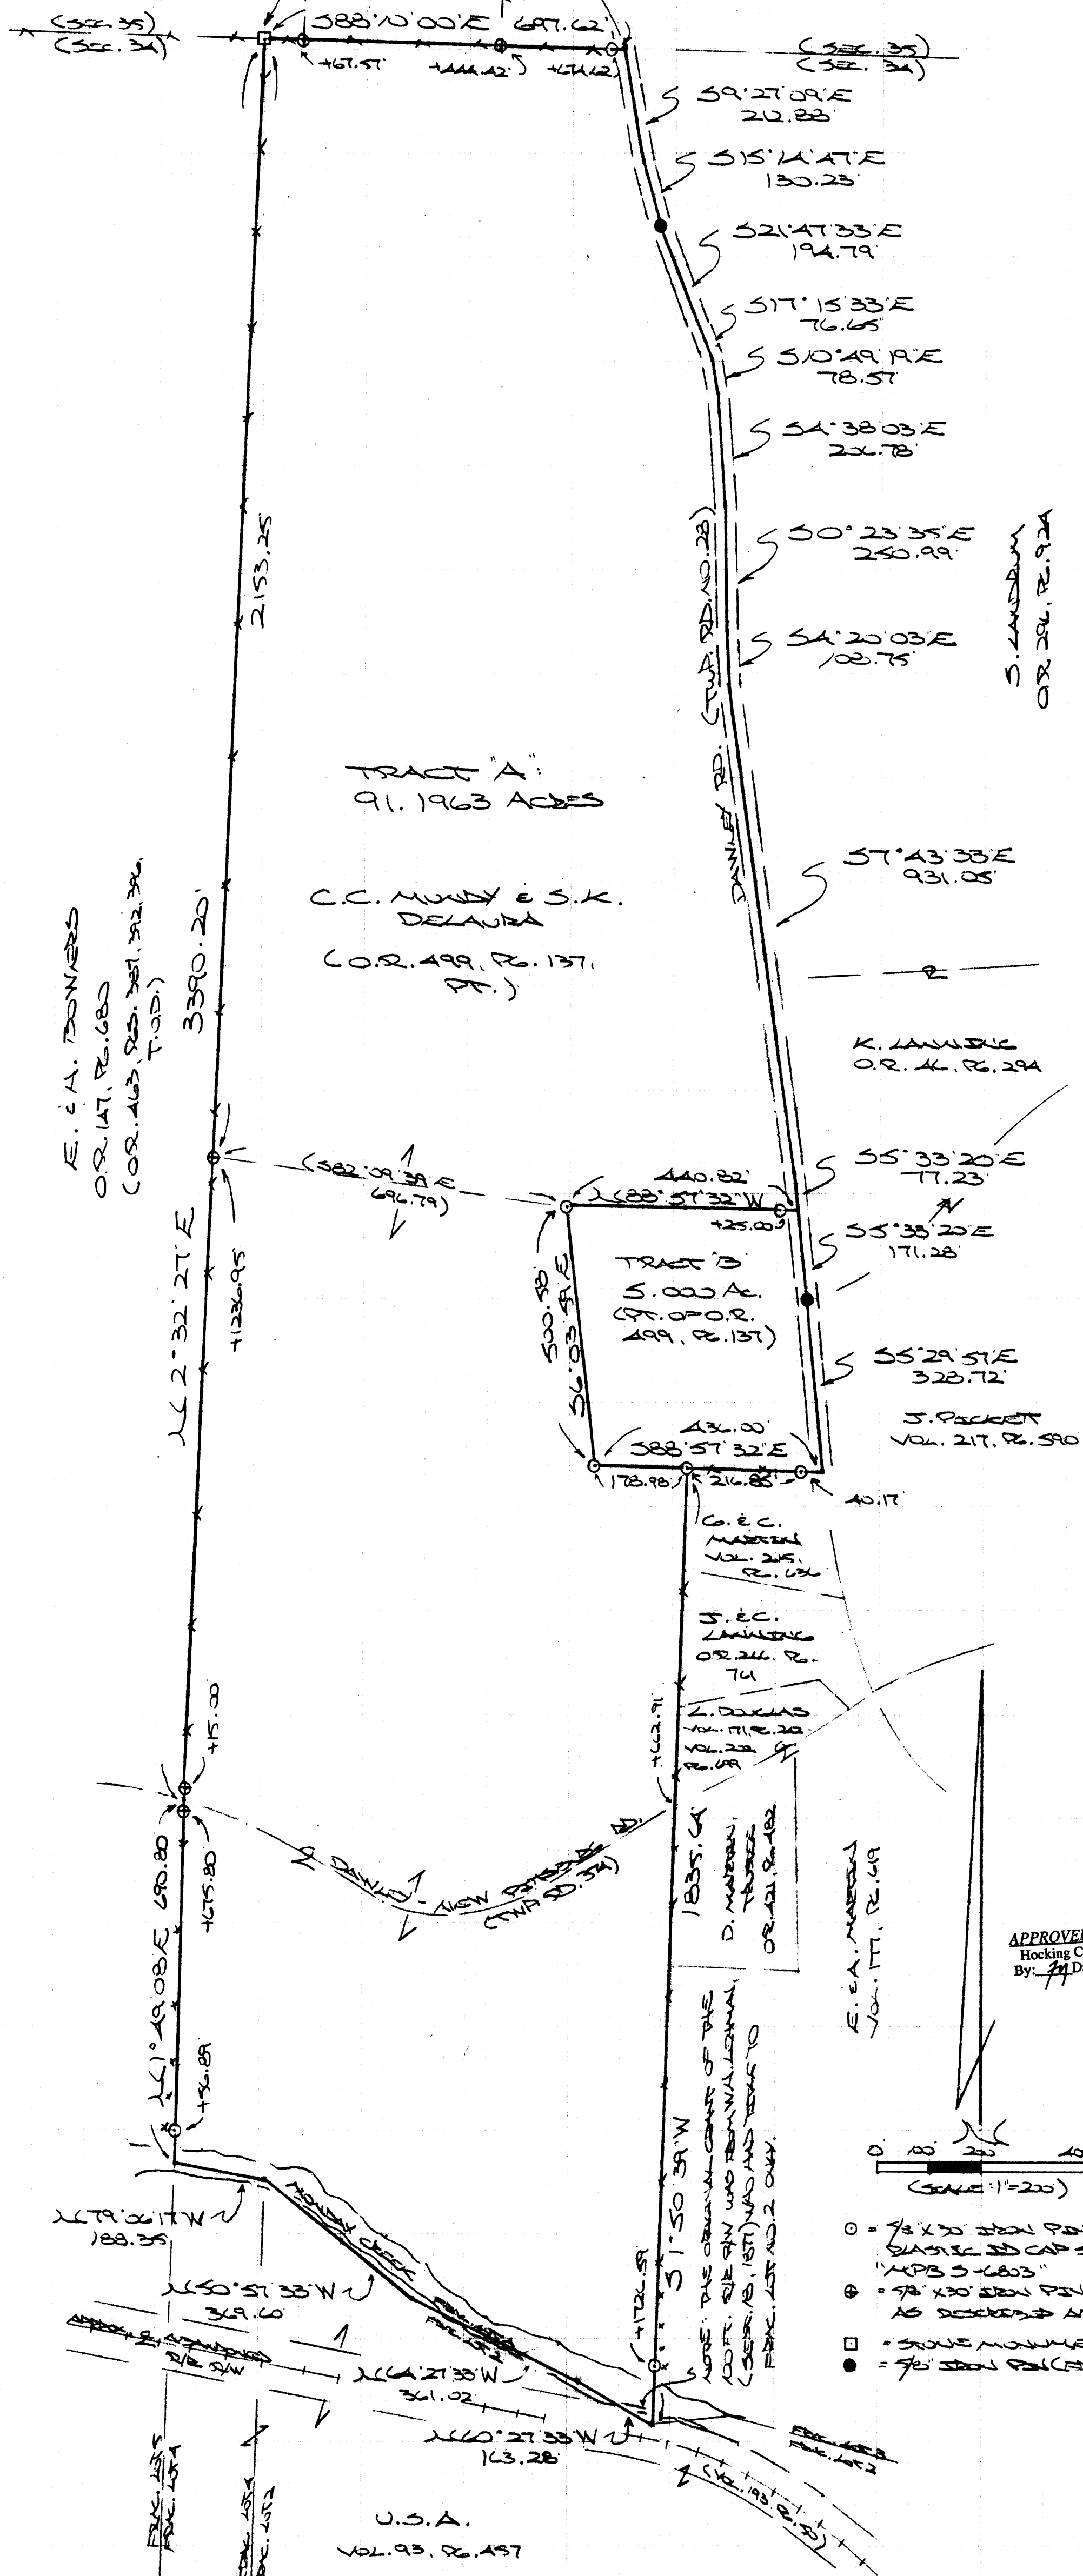 (SEC. 35)
(SEC. 34)
S88°10'00"E 697.62'
+67.57'
+444.42'
+674.62'
(SEC. 35)
(SEC. 34)
S9°27'09"E
212.88'
S15°14'47"E
130.23'
S21°47'33"E
194.79'
S17°15'33"E
76.65'
S10°49'19"E
78.57'
S4°38'03"E
206.78'
S0°23'35"E
250.99'
S4°20'03"E
108.75'
S. LANDRUM
O.R. 296, PG. 924
DAWLEY RD. (TWP. RD. NO. 28)
2153.25
TRACT "A":
91.1963 ACRES
C.C. MUNDY & S.K.
DELAURA
(O.R. 499, PG. 137,
PT.)
S7°43'33"E
931.05'
E. & A. BOWERS
O.R. 147, PG. 680
(O.R. 463, PGS. 387, 392, 396,
T.O.D.)
3390.20'
N2°32'27"E
+1236.95
K. LANNING
O.R. 46, PG. 294
(S82°09'39"E
696.79')
440.82'
N88°57'32"W
+25.00'
S5°33'20"E
77.23'
S5°33'20"E
171.28'
TRACT "B"
5.000 AC.
(PT. OF O.R.
499, PG. 137)
500.58'
S6°03'59"E
S5°29'57"E
328.72'
J. PICKETT
VOL. 217, PG. 590
436.00'
S88°57'32"E
178.98'
216.85'
40.17'
G. & C.
MARTIN
VOL. 215,
PG. 636
J. & C.
LANNING
O.R. 266, PG.
761
L. DOUGLAS
VOL. 171, PG. 20
VOL. 202
PG. 699
+662.91
+15.00
+675.80'
DAWLEY - NEW PITTSBURG RD.
(TWP. RD. 354)
1835.64'
D. MARTIN,
TRUSTEE
O.R. 421, PG. 482
E. & A. MARTIN
VOL. 177, PG. 619
APPROVED
Hocking C
By:
N1°49'08"E 690.80'
+56.89'
S1°50'39"W
NOTE: THE ORIGINAL GRANT OF THE
100 FT. R/R R/W WAS FROM W.A. LOHMAN,
(SEPT. 18, 1877) WHO HAD TITLE TO
FRAC. LOT NO. 2 ONLY.
0 100' 200'
(SCALE: 1"=200')
⊙ = 5/8" X 30" IRON PIN
PLASTIC ID CAP S
"MPB S-6803"
⊕ = 5/8" X 30" IRON PIN
AS DESCRIBED A
□ = STONE MONUME
● = 5/8" IRON PIN (F
N79°06'17"W
188.35'
MONDAY CREEK
N50°57'33"W
369.60'
APPROX. ℄ ABANDONED
R/R R/W
N64°27'33"W
361.02'
+1726.59'
N60°27'33"W
163.28'
FRAC. LOT 3
FRAC. LOT 2
(VOL. 193, PG. 50)
FRAC. LOT 5
FRAC. LOT 4
FRAC. LOT 2
U.S.A.
VOL. 93, PG. 457